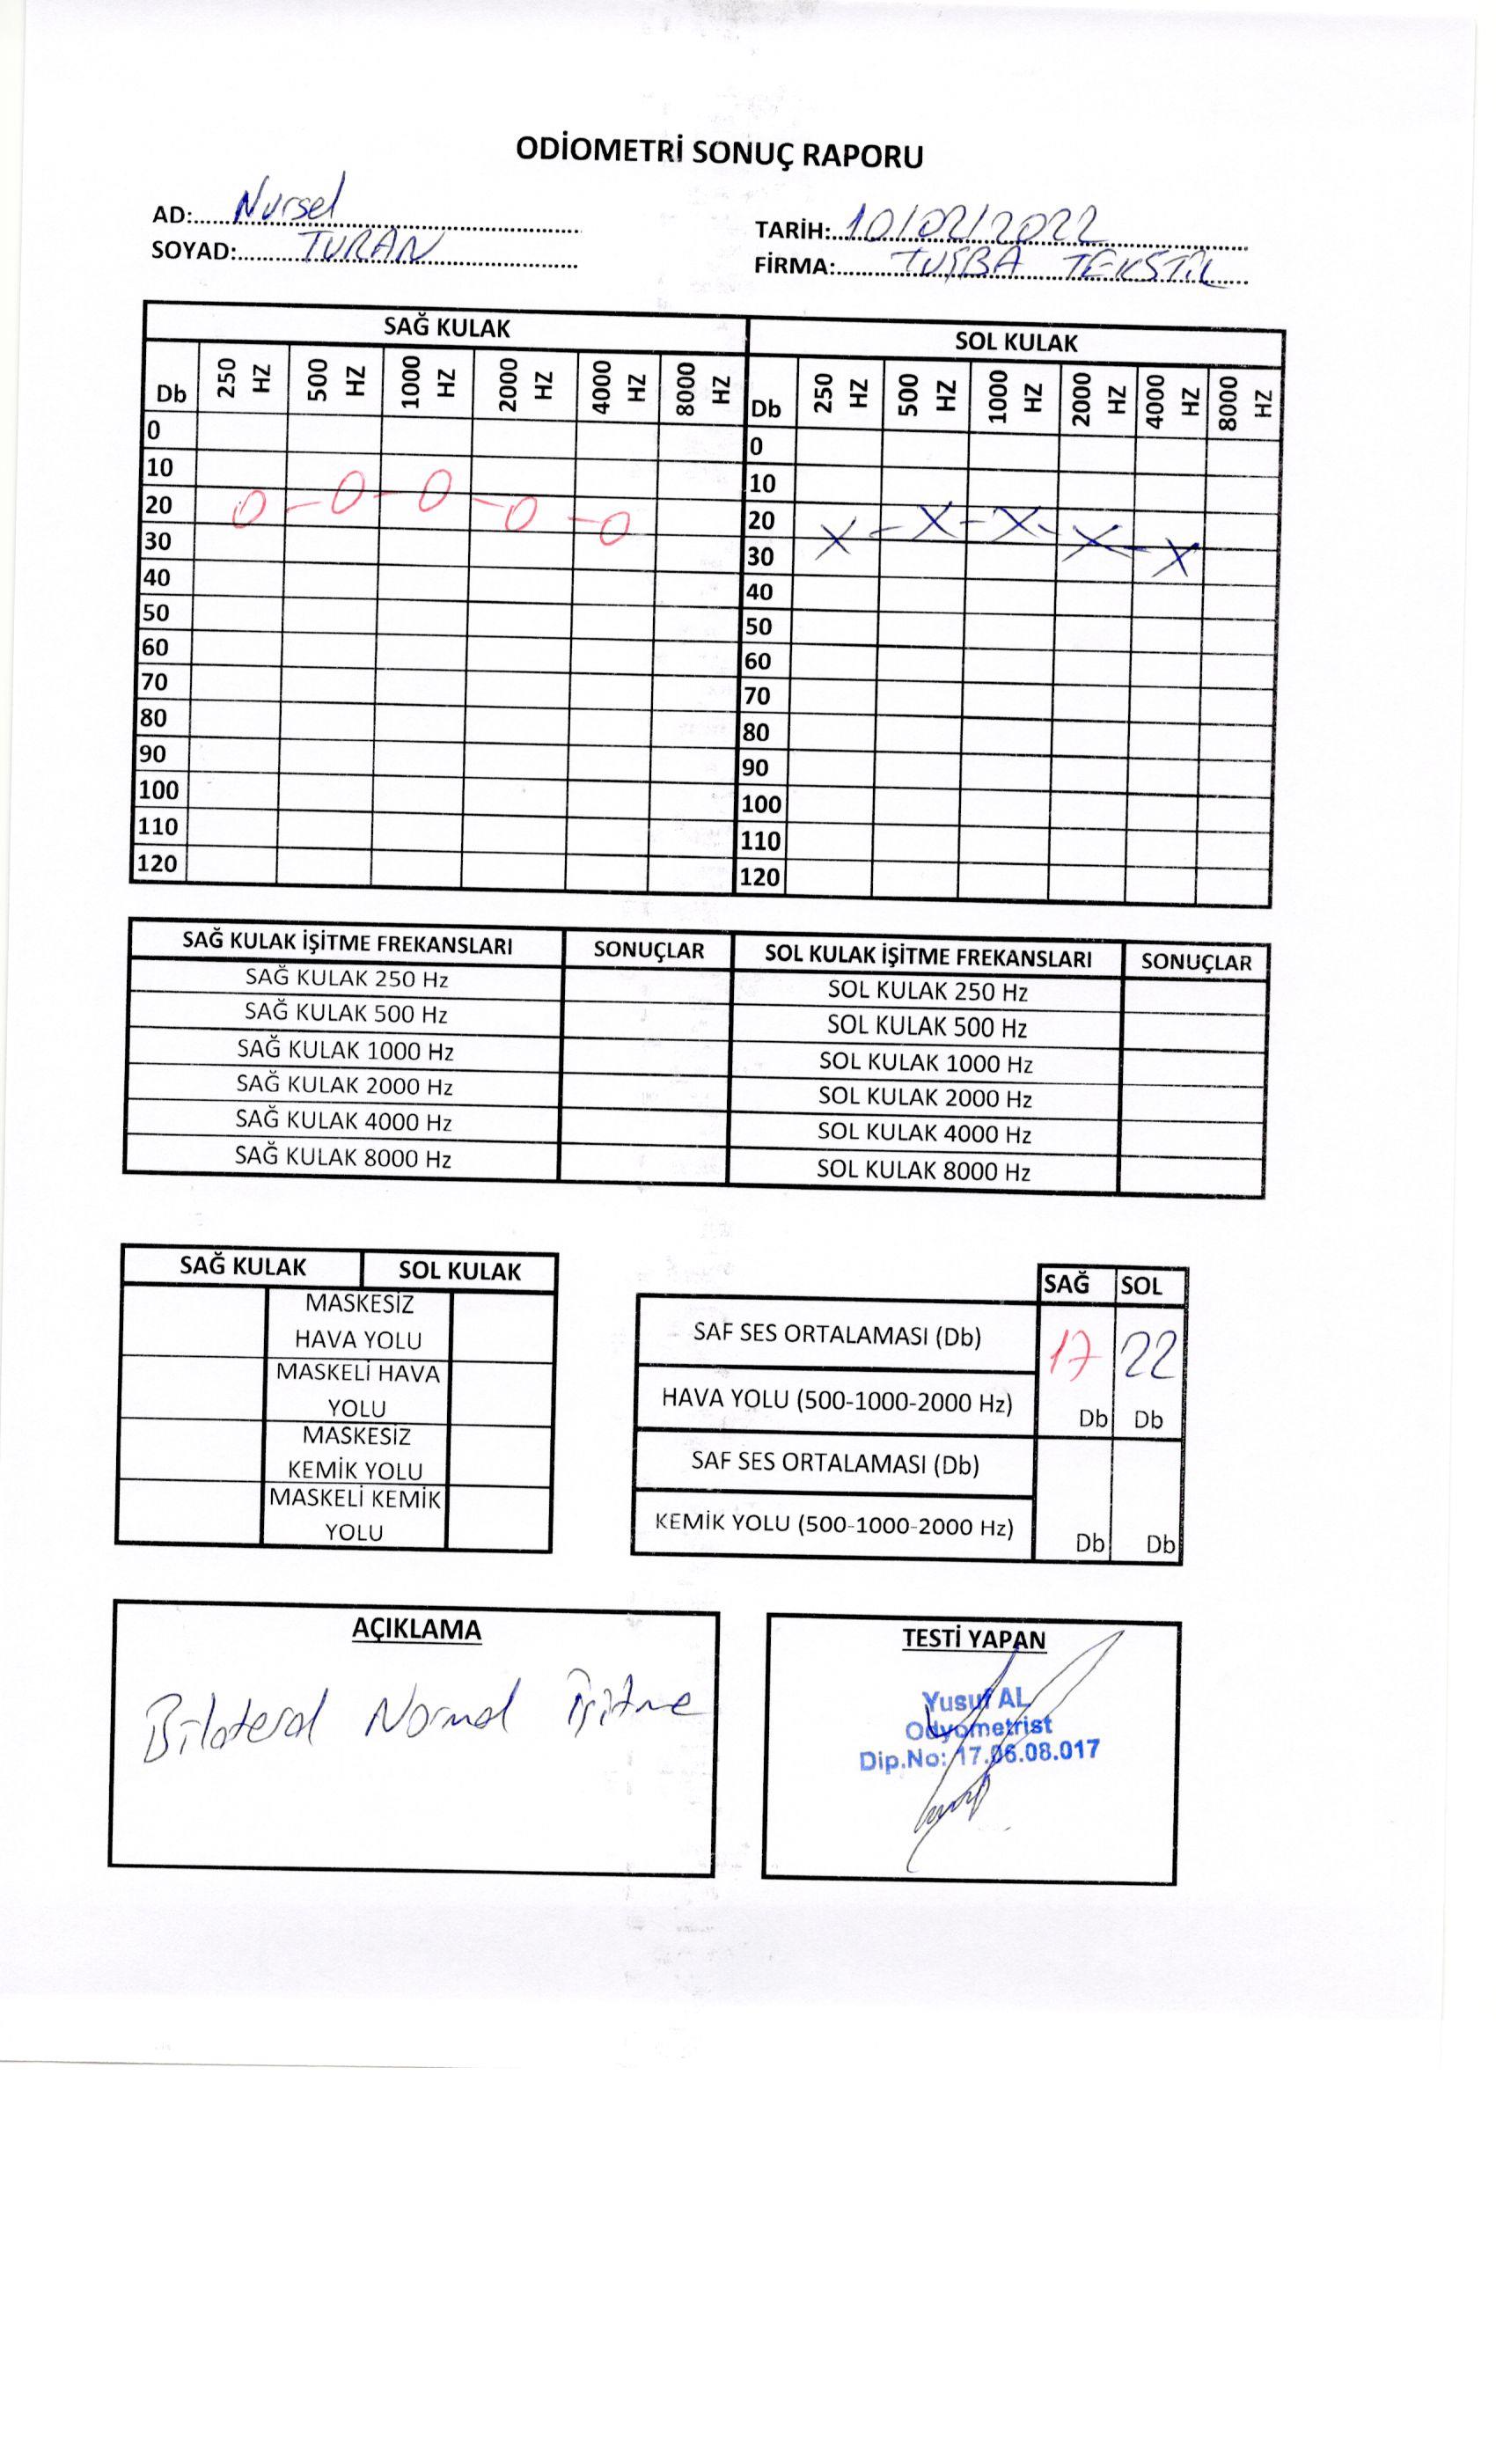 ODİOMETRİ SONUÇ RAPORU
AD: Nursel
SOYAD: TURAN
TARİH: 10/02/2022
FİRMA: TUŞBA TEKSTİL
SAĞ KULAK SOL KULAK
Db 250 HZ 500 HZ 1000 HZ 2000 HZ 4000 HZ 8000 HZ Db 250 HZ 500 HZ 1000 HZ 2000 HZ 4000 HZ 8000 HZ
0 0
10 10
20 20
30 30
40 40
50 50
60 60
70 70
80 80
90 90
100 100
110 110
120 120
SAĞ KULAK İŞİTME FREKANSLARI SONUÇLAR SOL KULAK İŞİTME FREKANSLARI SONUÇLAR
SAĞ KULAK 250 Hz SOL KULAK 250 Hz
SAĞ KULAK 500 Hz SOL KULAK 500 Hz
SAĞ KULAK 1000 Hz SOL KULAK 1000 Hz
SAĞ KULAK 2000 Hz SOL KULAK 2000 Hz
SAĞ KULAK 4000 Hz SOL KULAK 4000 Hz
SAĞ KULAK 8000 Hz SOL KULAK 8000 Hz
SAĞ KULAK SOL KULAK
MASKESİZ
HAVA YOLU
MASKELİ HAVA
YOLU
MASKESİZ
KEMİK YOLU
MASKELİ KEMİK
YOLU
SAĞ SOL
SAF SES ORTALAMASI (Db) 17 22
HAVA YOLU (500-1000-2000 Hz) Db Db
SAF SES ORTALAMASI (Db)
KEMİK YOLU (500-1000-2000 Hz) Db Db
AÇIKLAMA
Bilateral Normal İşitme
TESTİ YAPAN
Yusuf AL
Odyometrist
Dip.No: 17.06.08.017